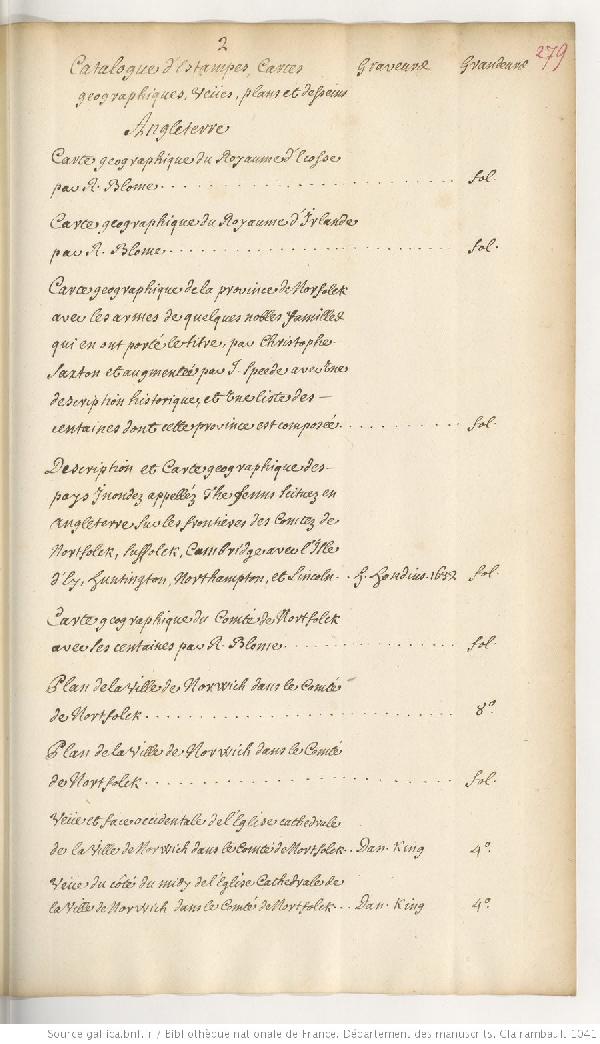 2
279
Catalogue d'Estampes, Cartes Graveurs Grandeurs
geographiques, Veües, plans et desseins
Angleterre
Carte geographique du Royaume d'Ecosse
par R. Blome . . . . . . . . . . . . . . . . . . . . fol.
Carte geographique du Royaume d'Irlande
par R. Blome . . . . . . . . . . . . . . . . . . . . fol.
Carte geographique de la province de Norfolck
avec les armes de quelques nobles familles
qui en ont porté le titre, par Christophe
Saxton et augmentée par J. Speede avec Une
description historique, et Une liste des -
centaines dont cette province est composée . . . . . . . . . fol.
Description et Carte geographique des
pays Jnondez appelléz The fenns scituez en
Angleterre sur les frontieres des Comtez de
Nortfolck, suffolck, Cambridge avec l'Isle
d'Ely, Huntington, Northampton, et Lincoln . . H. Hondius. 1632 fol.
Carte geographique du Comté de Nortfolck
avec les centaines par R. Blome . . . . . . . . . . . . . fol.
Plan de la Ville de Norwich dans le Comté
de Nortfolck . . . . . . . . . . . . . . . . . . . . 8.º
Plan de la Ville de Norwich dans le Comté
de Nortfolck . . . . . . . . . . . . . . . . . . . . fol.
Veüe et face occidentale de l'Eglise cathedrale
de la Ville de Norwich dans le Comté de Nortfolck . Dan. King 4.º
Veüe du côté du midy de l'Eglise Cathedrale de
la Ville de Norwich dans le Comté de Nortfolck . . Dan. King 4.º
Source gallica.bnf.fr / Bibliothèque nationale de France. Département des manuscrits. Clairambault 1041